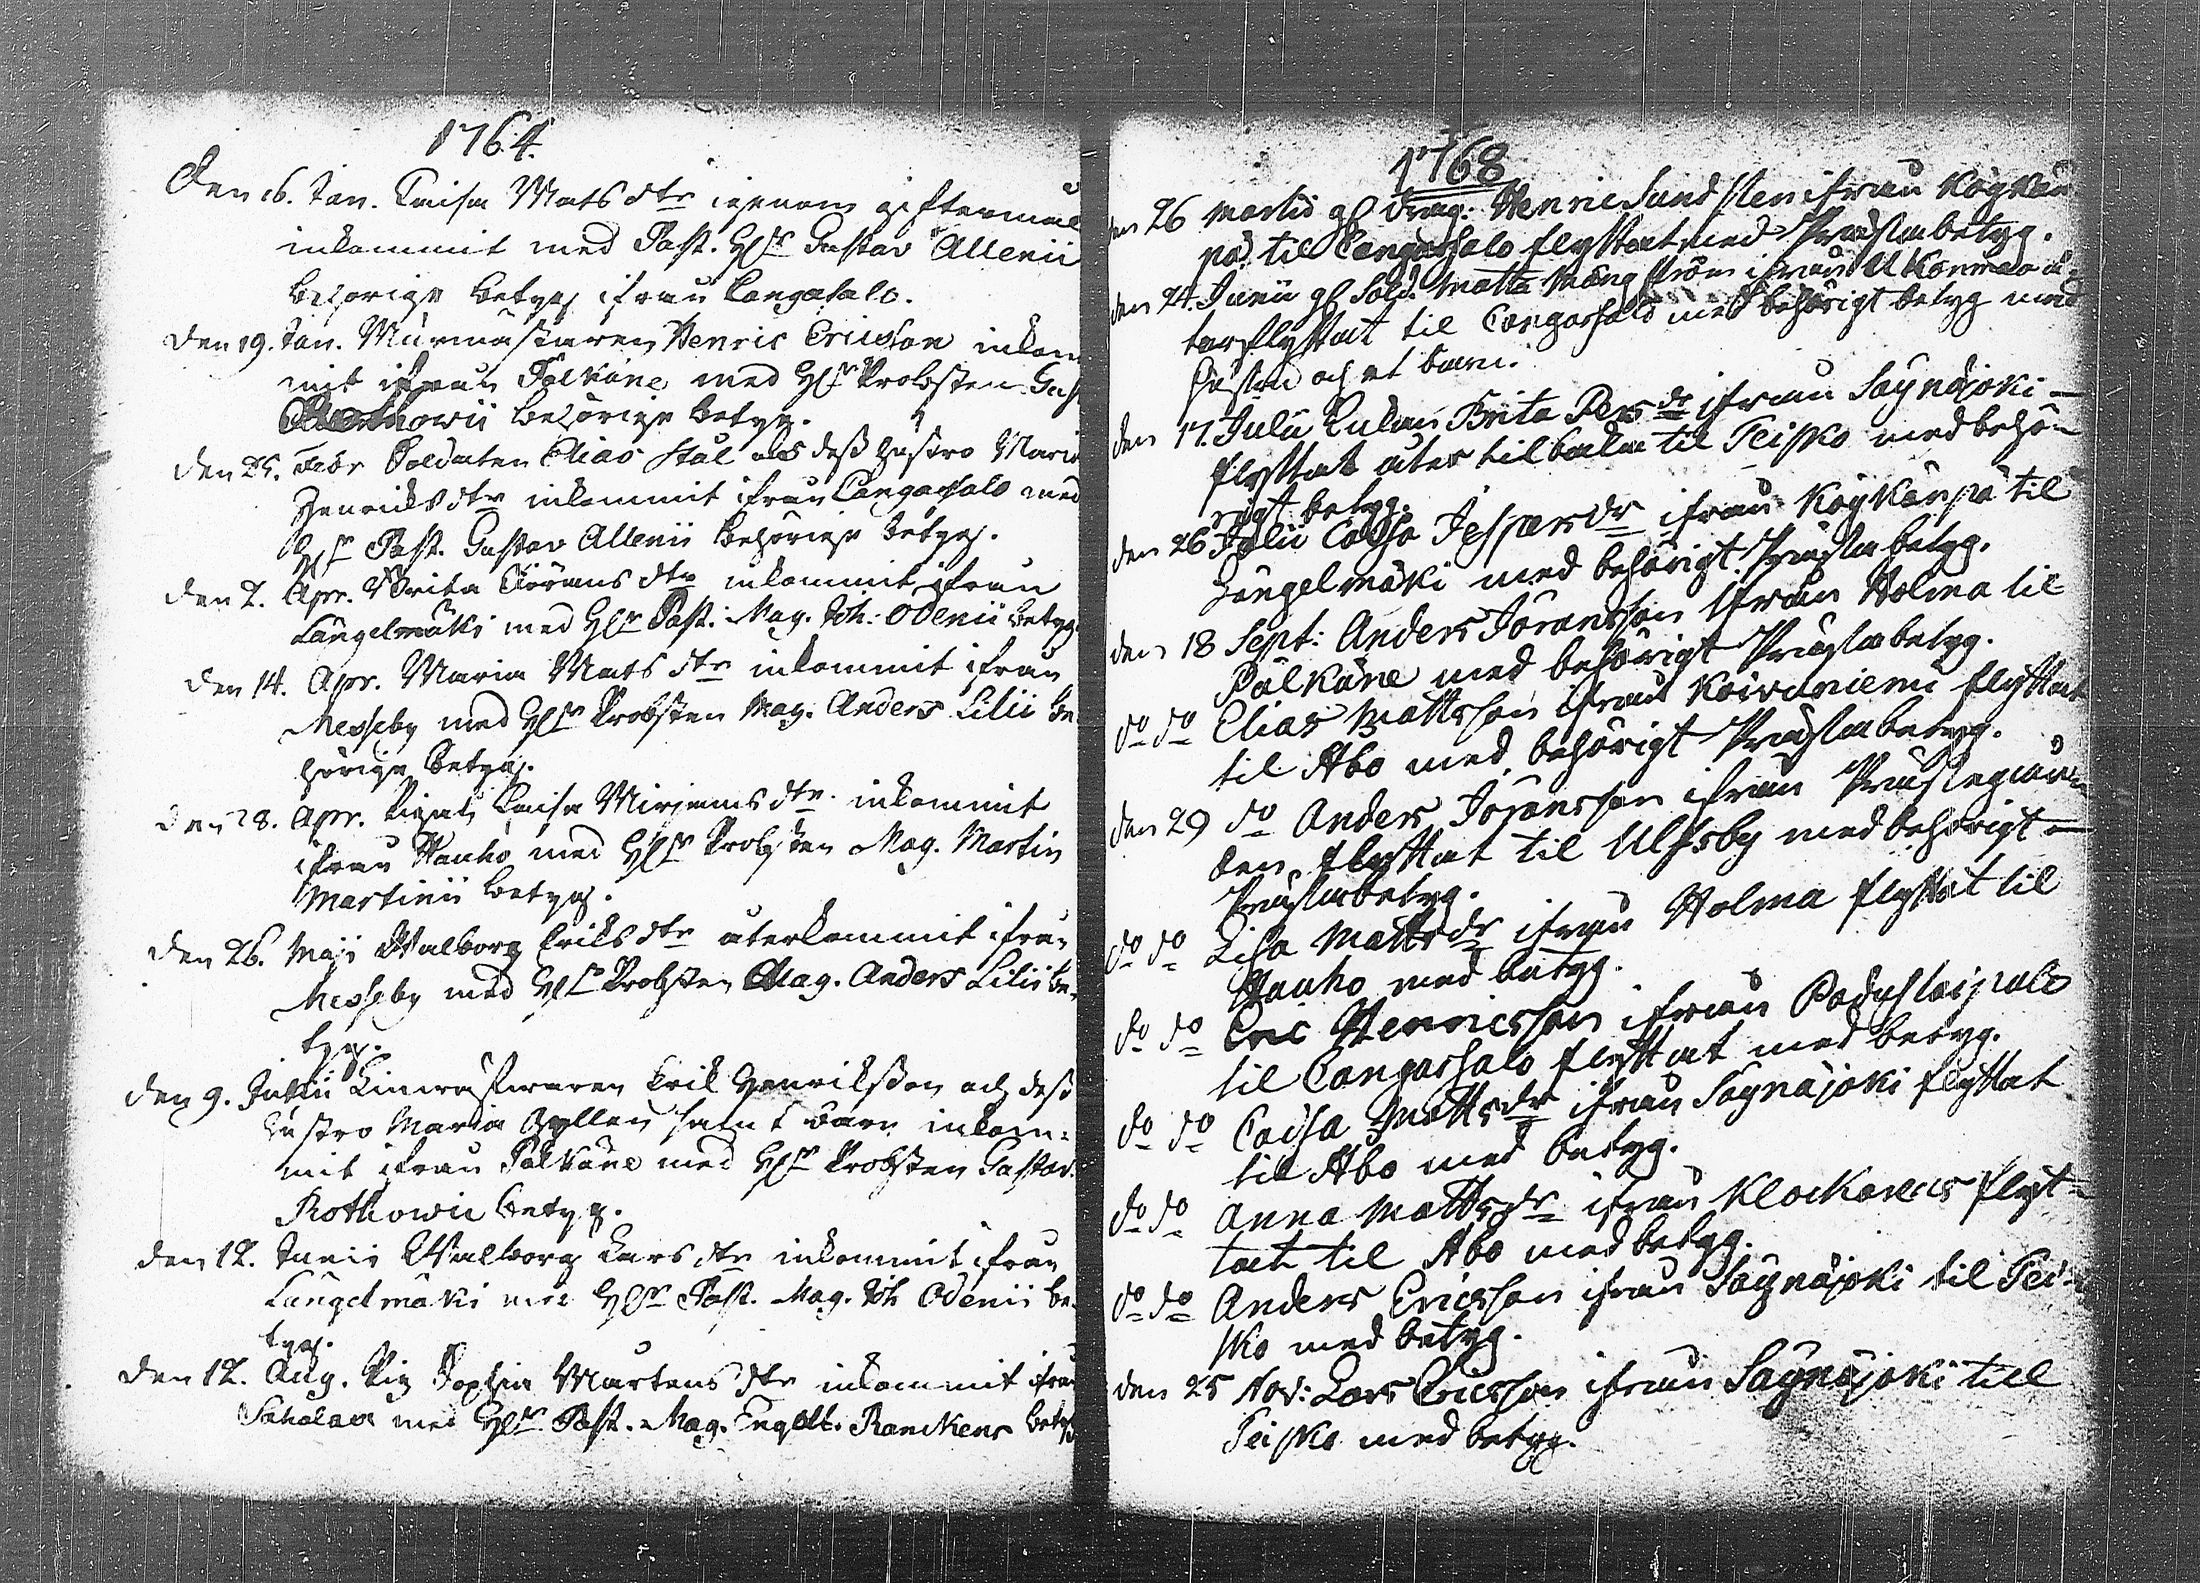 1764.
Den 16. Jan. Caisa Mats dtr igenom giftermål
inkommit med Past. H:r Gustav Allenii
behörige betyg ifrån Cangasalo.
Den 19. Jan. Murmästaren Henric Ericsson inkom
mit ifrån Pälkäne med H:r Probsten Gust
Rothowii behörige betyg.
Den 25. Febr Soldaten Elias Stål och dess hustro Maria
Henriks dtr inkommit ifrån Cangasalo med
H:r Past. Gustav Allenii behörige betyg.
Den 2. Apr. Brita Görans dtr inkommit ifrån
Längelmäki med H:r Past. Mag. Joh: Odenii betyg
Den 14. Apr. Maria Mats dtr inkommit ifrån
Messeby med H:r Probsten Mag. Anders Lilii be-
hörige betyg.
Den 28. Apr. Pigan Caisa dtr inkommit
ifrån Hauho med H:r Probsten Mag. Martin
Martinii betyg.
Den 26. Maji Walborg Eriks dtr återkommit ifrån
Messeby med H:r Probsten Mag. Anders Lilii be-
tyg.
Den 9. Erik Henriksson och dess
hustro Maria samt barn inkom=
mit ifrån Pälkäne med H:r Probsten Gustav.
Rothowii betyg.
Den 12. Junii Walborg Lars dtr inkommit ifrån
Längelmäki med H:r Past. Mag. Joh Odenii be-
tyg.
Den 12. Aug. Pig Sophia Mårtens dtr inkommit ifrån
Sahalax med H:r Past. Mag. Engelb. Ranckens betyg
1768
den 26 Martii gl Drag: Henric Sundsten ifrån Köykän
pä til Cangasalo flyttat med Prästabetyg.
den 24. Junii gl Sold. Matts ifrån Ukonmaa å-
terflyttat til Cangassalo med behörigt betyg med
hustru och et barn.
den 17. Julii Enkan Brita Pers dr ifrån Saynäjoki -
flyttat åter tilbaka til Teisko med behö-
rigt betyg.
den 26 Julii Caisa Jespers dr ifrån Köykänpä til
Längelmäki med behörigt Prästabetyg.
den 18 Sept: Anders Jöransson ifrån Holma til
Pälkäne med behörigt Prästabetyg.
do do Elias Mattsson ifrån Koivuniemi flyttat
til Abo med behörigt Prästabetyg.
den 29 do Anders Jöransson ifrån Prästegår-
den flyttat til Ulfsby med behörigt -
Prästabetyg.
do do Lisa Matts dr ifrån Holma flyttat til
Hauho med betyg.
do do Eric Henricsson ifrån
til Cangassalo flyttat med betyg.
do do Caisa Matts dr ifrån Saynäjoki flyttat
til Abo med betyg.
do do Anna Matts dr ifrån Klockarens flyt-
tat til Abo med betyg.
do do Anders Ericsson ifrån Saynäjoki til Tei-
sko med betyg.
den 25 Nov: Lars Ericsson ifrån Saynäjoki till
Teisko med betyg.